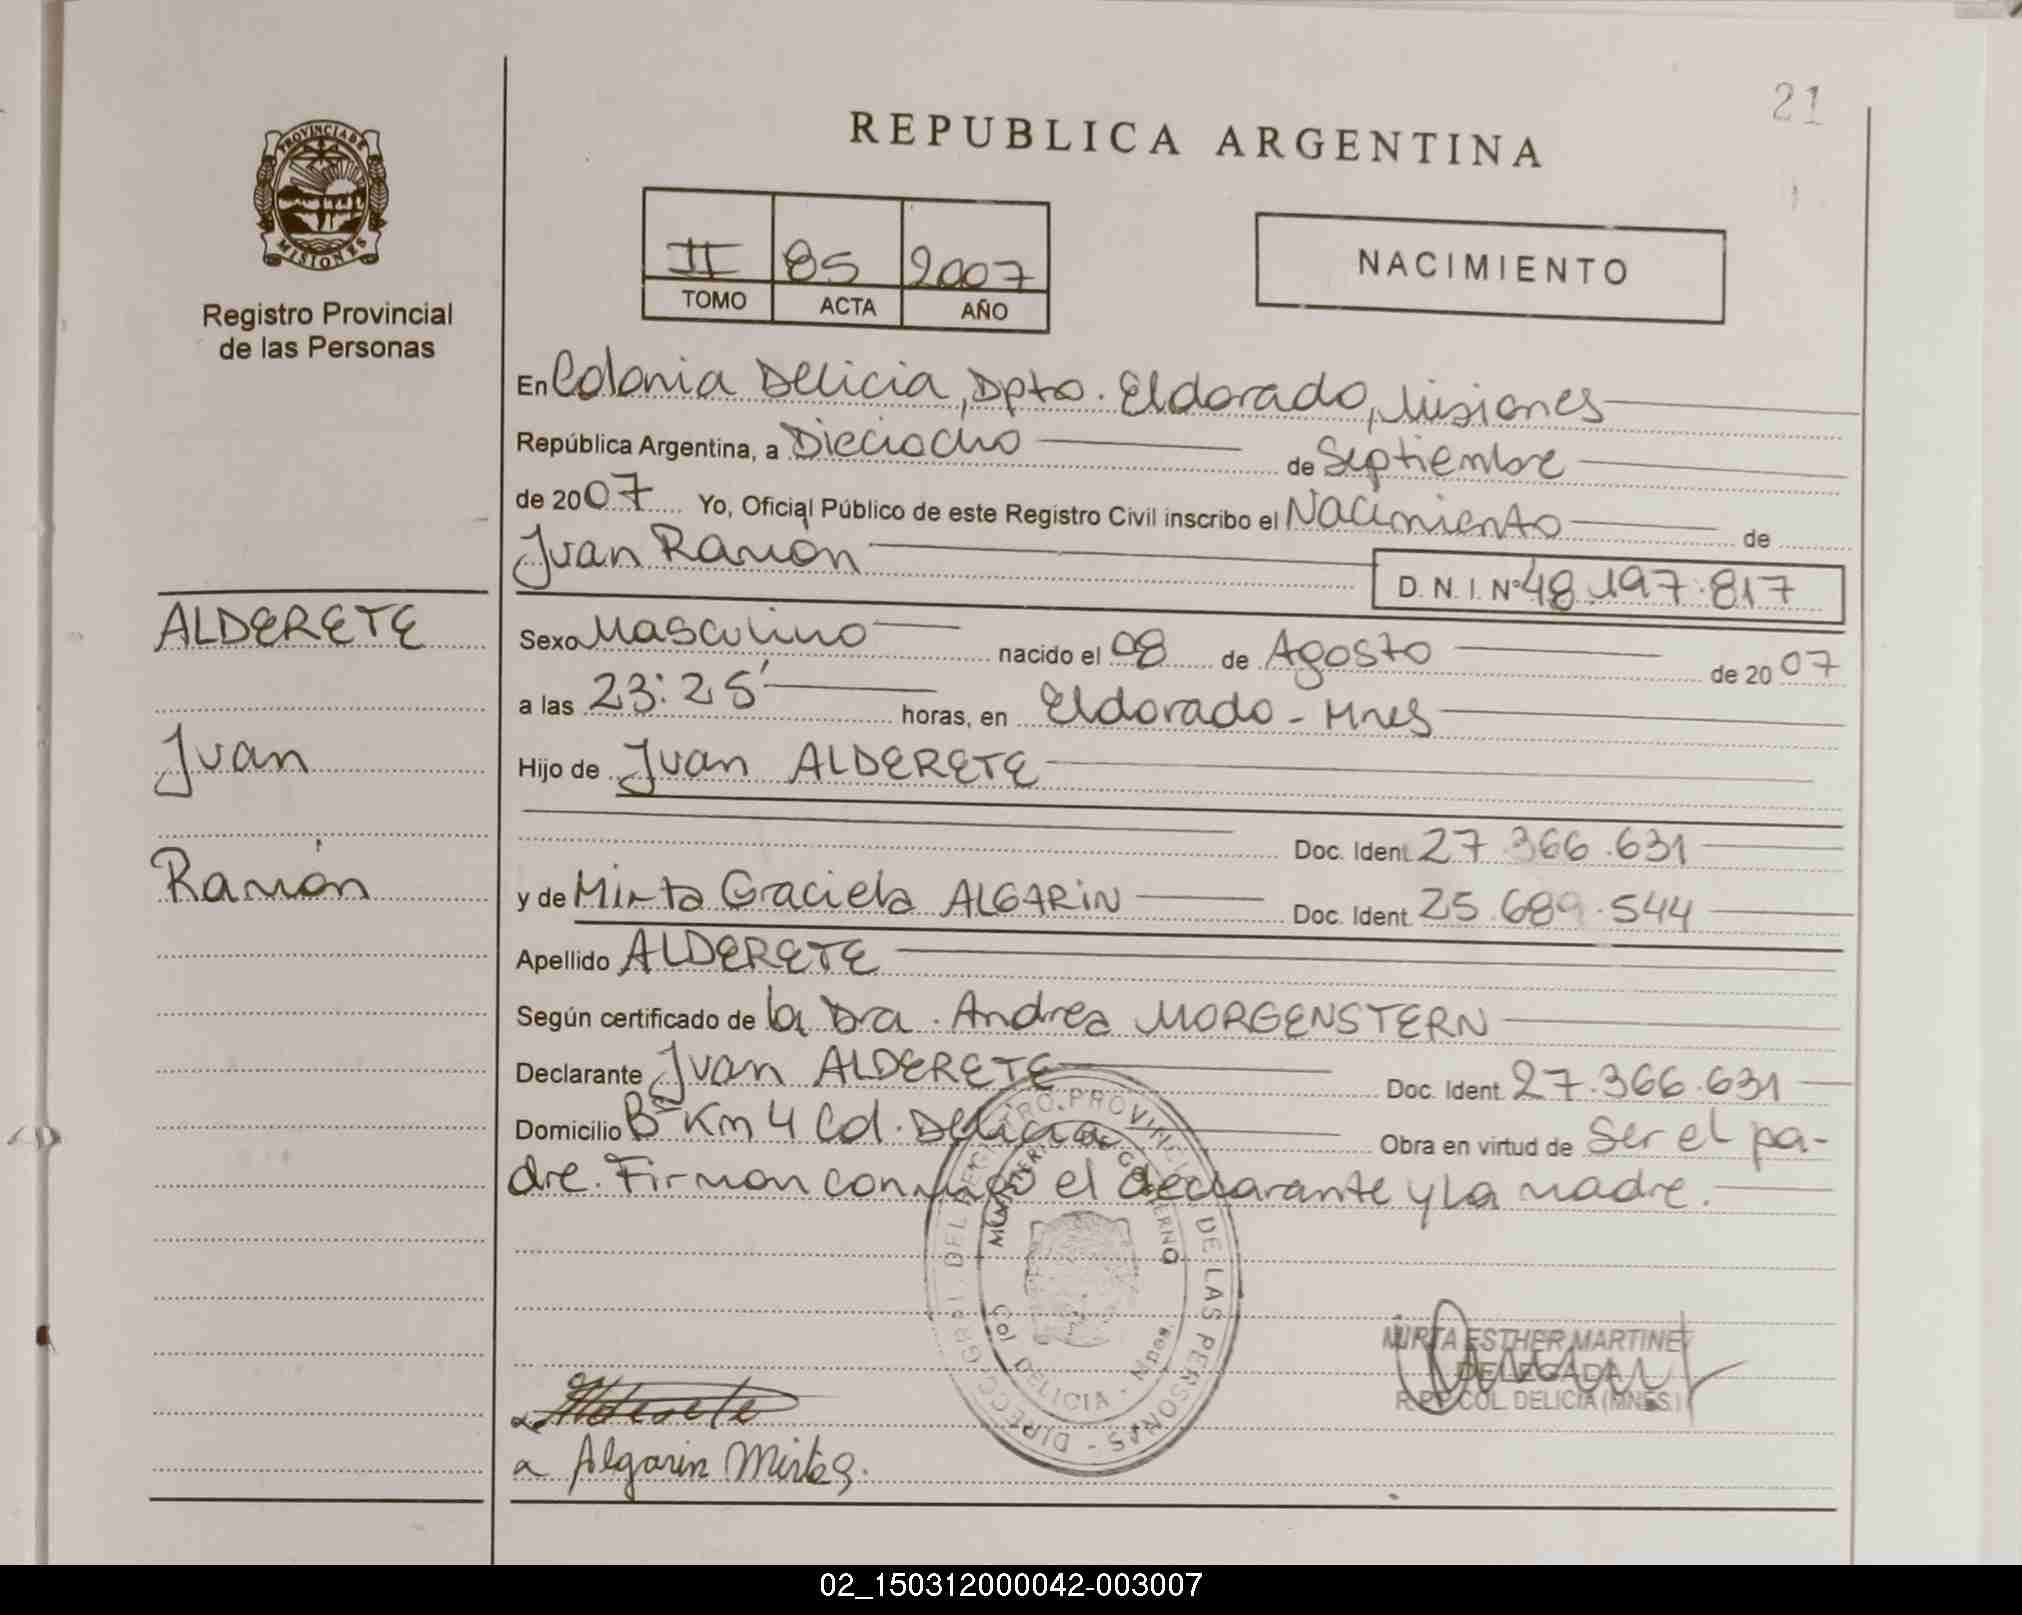 21
REPUBLICA ARGENTINA
PROVINCIA DE
MISIONES
Registro Provincial
de las Personas
II 85 2007
TOMO ACTA AÑO
NACIMIENTO
En Colonia Delicia, Dpto. Eldorado, Misiones
República Argentina, a Dieciocho de Septiembre
de 2007 Yo, Oficial Público de este Registro Civil inscribo el Nacimiento de
Juan Ramón D. N. I. Nº 48.197.817
ALDERETE
Juan
Ramón
Sexo Masculino nacido el 08 de Agosto de 2007
a las 23:25' horas, en Eldorado - Mnes
Hijo de Juan ALDERETE
Doc. Ident. 27.366.631
y de Mirta Graciela ALGARIN Doc. Ident. 25.689.544
Apellido ALDERETE
Según certificado de la Dra. Andrea MORGENSTERN
Declarante Juan ALDERETE Doc. Ident. 27.366.631
Domicilio Bº Km 4 Col. Delicia Obra en virtud de Ser el pa-
dre. Firman conmigo el declarante y la madre.
DIRECC. GRAL. DEL REGISTRO PROVINCIAL DE LAS PERSONAS
MINISTERIO DE GOBIERNO
Col DELICIA - Mnes.
MIRTA ESTHER MARTINEZ
DELEGADA
R.P.P. COL. DELICIA (MNES)
Alderete
a Algarin Mirta G.
02_150312000042-003007